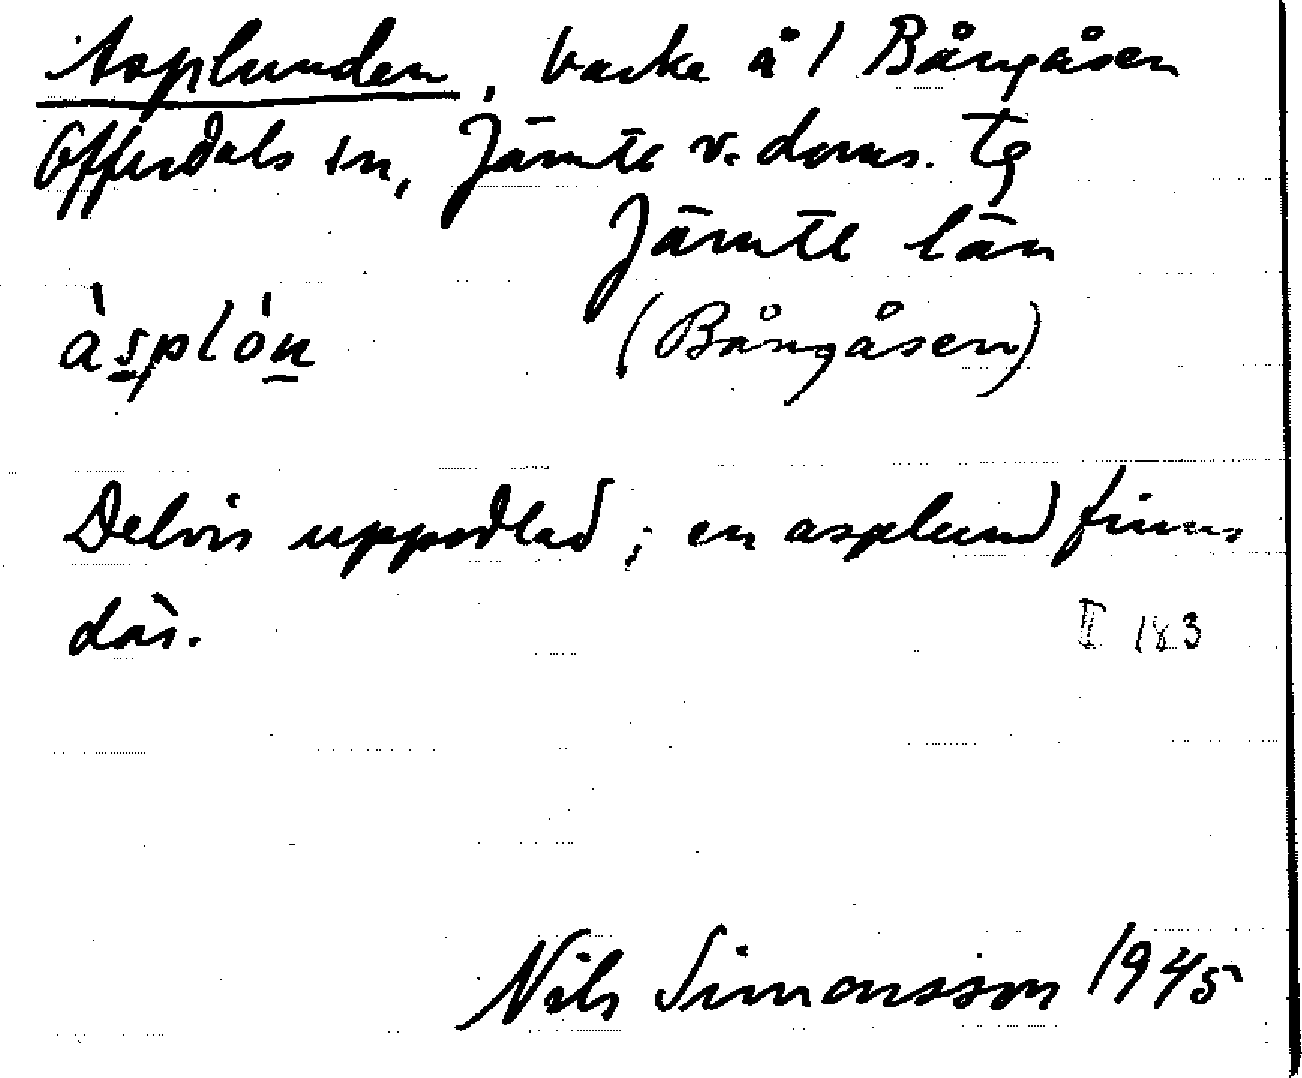 Asplunden, backe å 1 Bångåsen
Offerdals sn, Jämtl v. doms. tg
Jämtl län
àsplón (Bångåsen)
Delvis uppodlad; en asplund finns
där. II 183
Nils Simonsson 1945